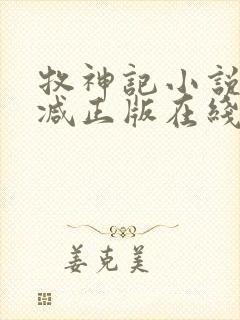 牧神記小說
减正版在綫
姜克美